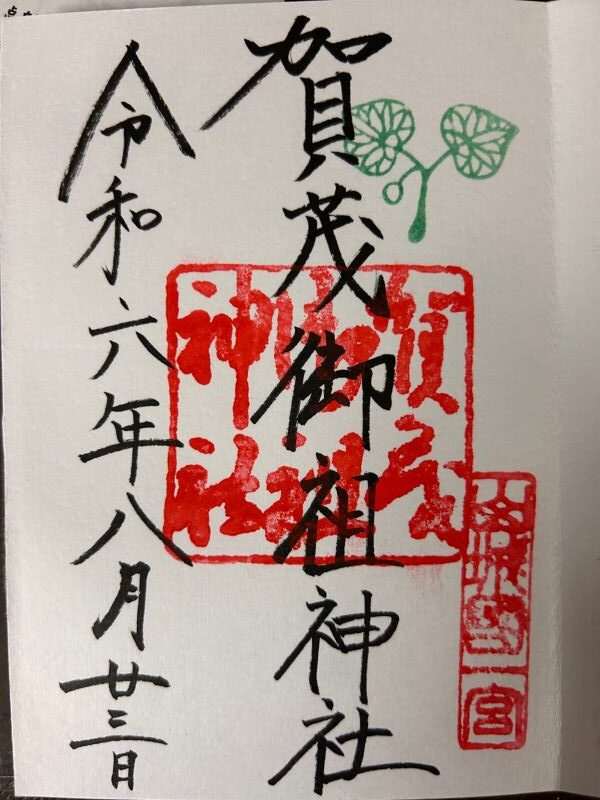 賀茂御祖神社
令和六年八月廿三日
賀茂
御祖
神社
山城国一宮